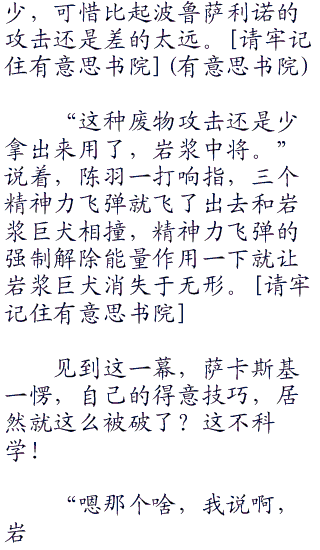 少，可惜比起波鲁萨利诺的
攻击还是差的太远。[请牢记
住有意思书院] (有意思书院)
“这种废物攻击还是少
拿出来用了，岩浆中将。”
说着，陈羽一打响指，三个
精神力飞弹就飞了出去和岩
浆巨犬相撞，精神力飞弹的
强制解除能量作用一下就让
岩浆巨犬消失于无形。[请牢
记住有意思书院]
见到这一幕，萨卡斯基
一愣，自己的得意技巧，居
然就这么被破了？这不科
学！
“嗯那个啥，我说啊，
岩